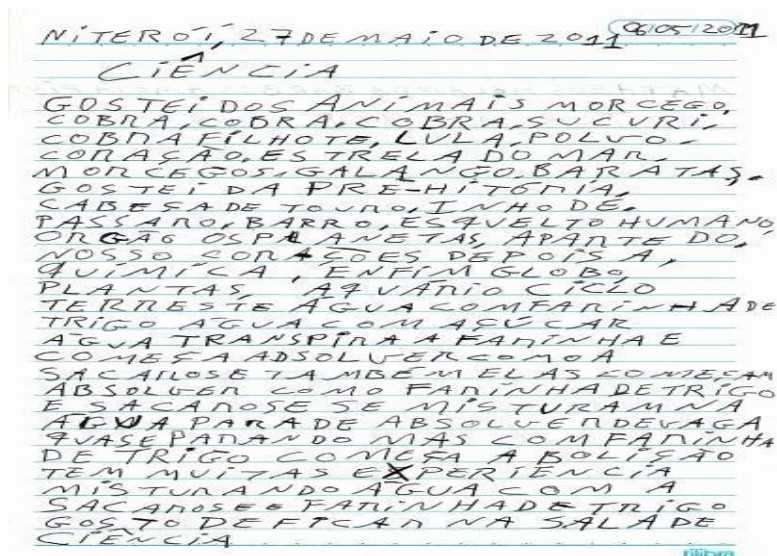 NITERÓI, 27 DE MAIO DE 2011 06/05/2011
CIÊNCIA
GOSTEI DOS ANIMAIS MORCEGO,
COBRA, COBRA, COBRA, SUCURI,
COBRA FILHOTE, LULA, POLVO.
CORAÇÃO, ESTRELA DO MAR,
MORCEGOS, GALANGO, BARATAS.
GOSTEI DA PRE-HITÓRIA,
CABESA DE TOURO, INHO DE,
PASSARO, BARRO, ESQUELTO HUMANO,
ORGÃO OS PLANETAS, APARTE DO,
NOSSO CORAÇÕES DEPOIS A,
QUÍMICA, ENFIM GLOBO,
PLANTAS, AQUÁRIO CICLO
TERRESTE ÁGUA COM FARINHA DE
TRIGO ÁGUA COM AÇÚCAR
ÁGUA TRANSPIRA A FARINHA E
COMEÇA ADSOLVER COMO A
SACAROSE TAMBÉM ELAS COMEÇAM
ABSOLVER COMO FARINHA DE TRIGO
E SACAROSE SE MISTURAM NA
ÁGUA PARA DE ABSOLVER DEVAGA
QUASE PARANDO MAS COM FARINHA
DE TRIGO COMEÇA A BOLIÇÃO
TEM MUITAS EXPERIÊNCIA
MISTURANDO ÁGUA COM A
SACAROSE E FARINHA DE TRIGO
GOSTO DE FICAR NA SALA DE
CIÊNCIA
tilibra